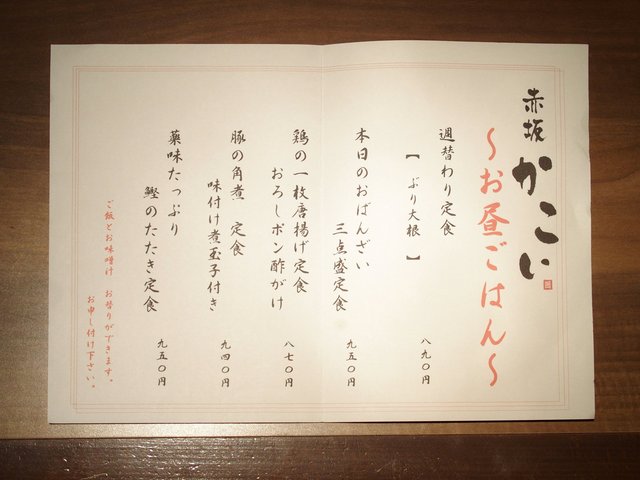 赤坂 かこい
〜お昼ごはん〜
週替わり定食
【 ぶり大根 】
八九〇円
本日のおばんざい
三点盛定食
九五〇円
鶏の一枚唐揚げ定食
おろしポン酢がけ
八七〇円
豚の角煮 定食
味付け煮玉子付き
九四〇円
薬味たっぷり
鰹のたたき定食
九五〇円
ご飯とお味噌汁 お替りができます。
お申し付け下さい。